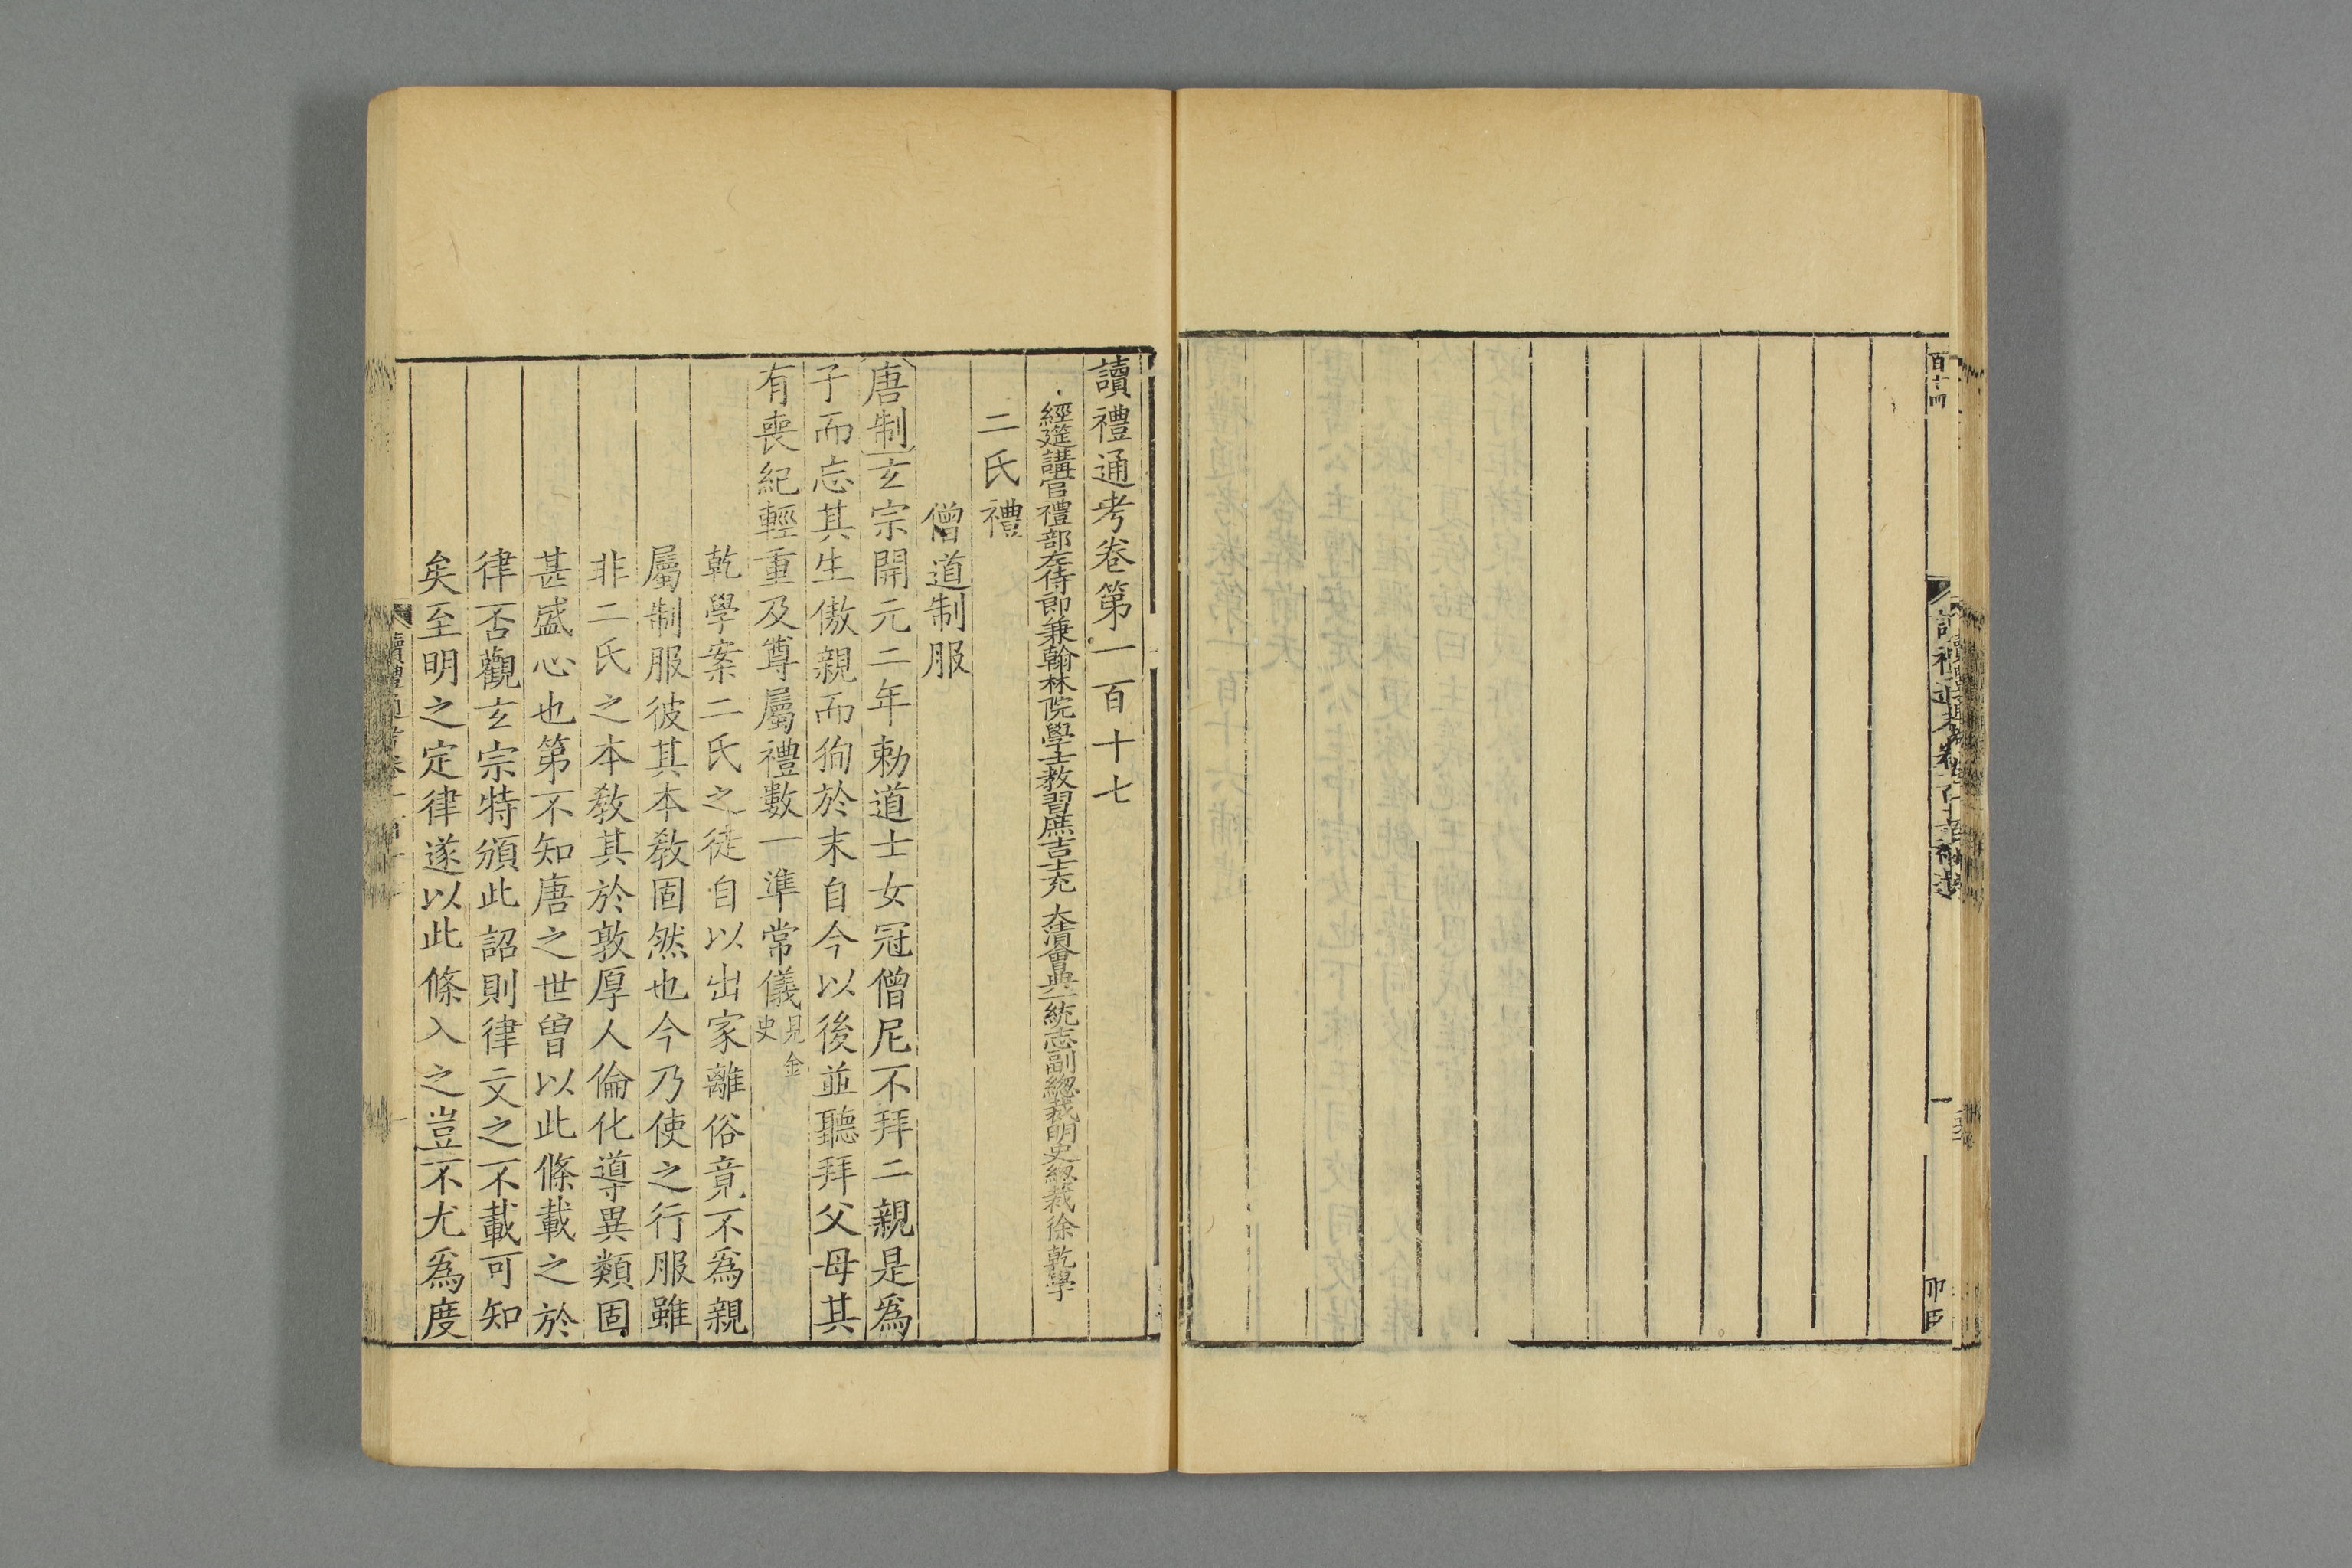 讀禮通考卷第一百十七
經筵講官禮部左侍郎兼翰林院學士教習庶吉士充 大清會典一統志副總裁明史總裁徐乾學
二氏禮
僧道制服
唐制玄宗開元二年勅道士女冠僧尼不拜二親是爲
子而忘其生傲親而狥於末自今以後並聽拜父母其
有喪紀輕重及尊屬禮數一準常儀見金
史
乾學案二氏之徒自以出家離俗竟不爲親
屬制服彼其本敎固然也今乃使之行服雖
非二氏之本敎其於敦厚人倫化導異類固
甚盛心也第不知唐之世曽以此條載之於
律否觀玄宗特頒此詔則律文之不載可知
矣至明之定律遂以此條入之豈不尤爲度